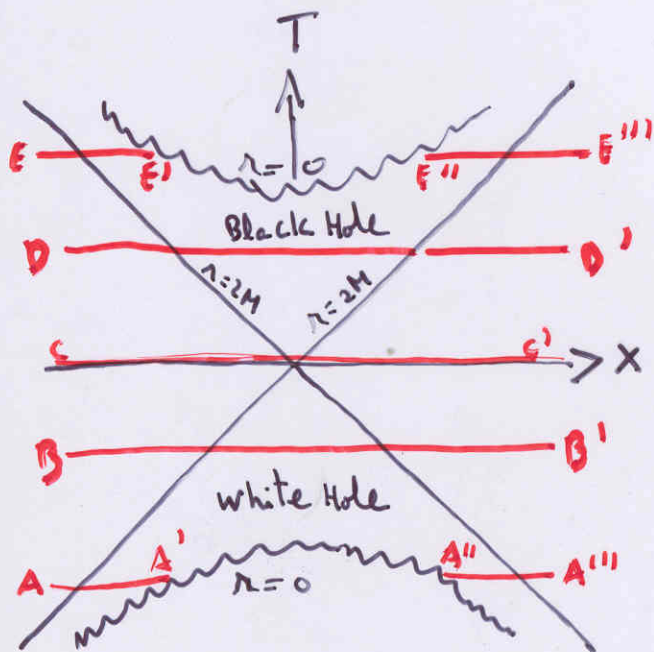 T
E E' r=0 E'' E'''
Black Hole
D D'
r=2M r=2M
C C'
X
B B'
White Hole
A A' A'' A'''
r=0